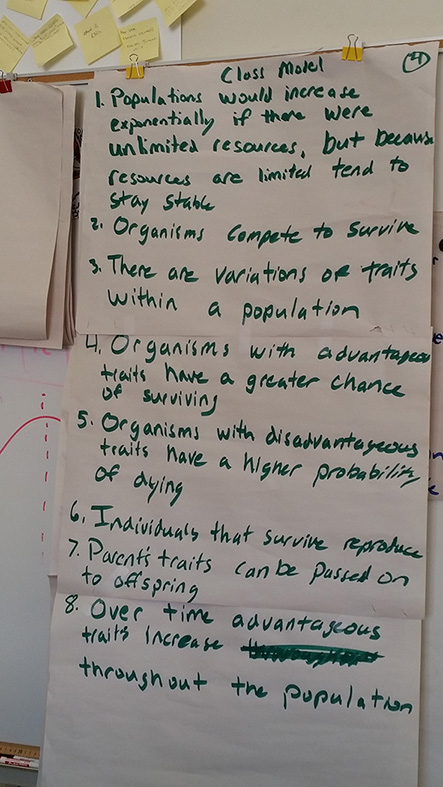 Class Model
4
1. Populations would increase
exponentially if there were
unlimited resources, but because
resources are limited tend to
stay stable
2. Organisms compete to survive
3. There are variations of traits
within a population
4. Organisms with advantageous
traits have a greater chance
of surviving
5. Organisms with disadvantageous
traits have a higher probability
of dying
6. Individuals that survive reproduce
7. Parent's traits can be passed on
to offspring
8. Over time advantageous
traits increase
throughout the population